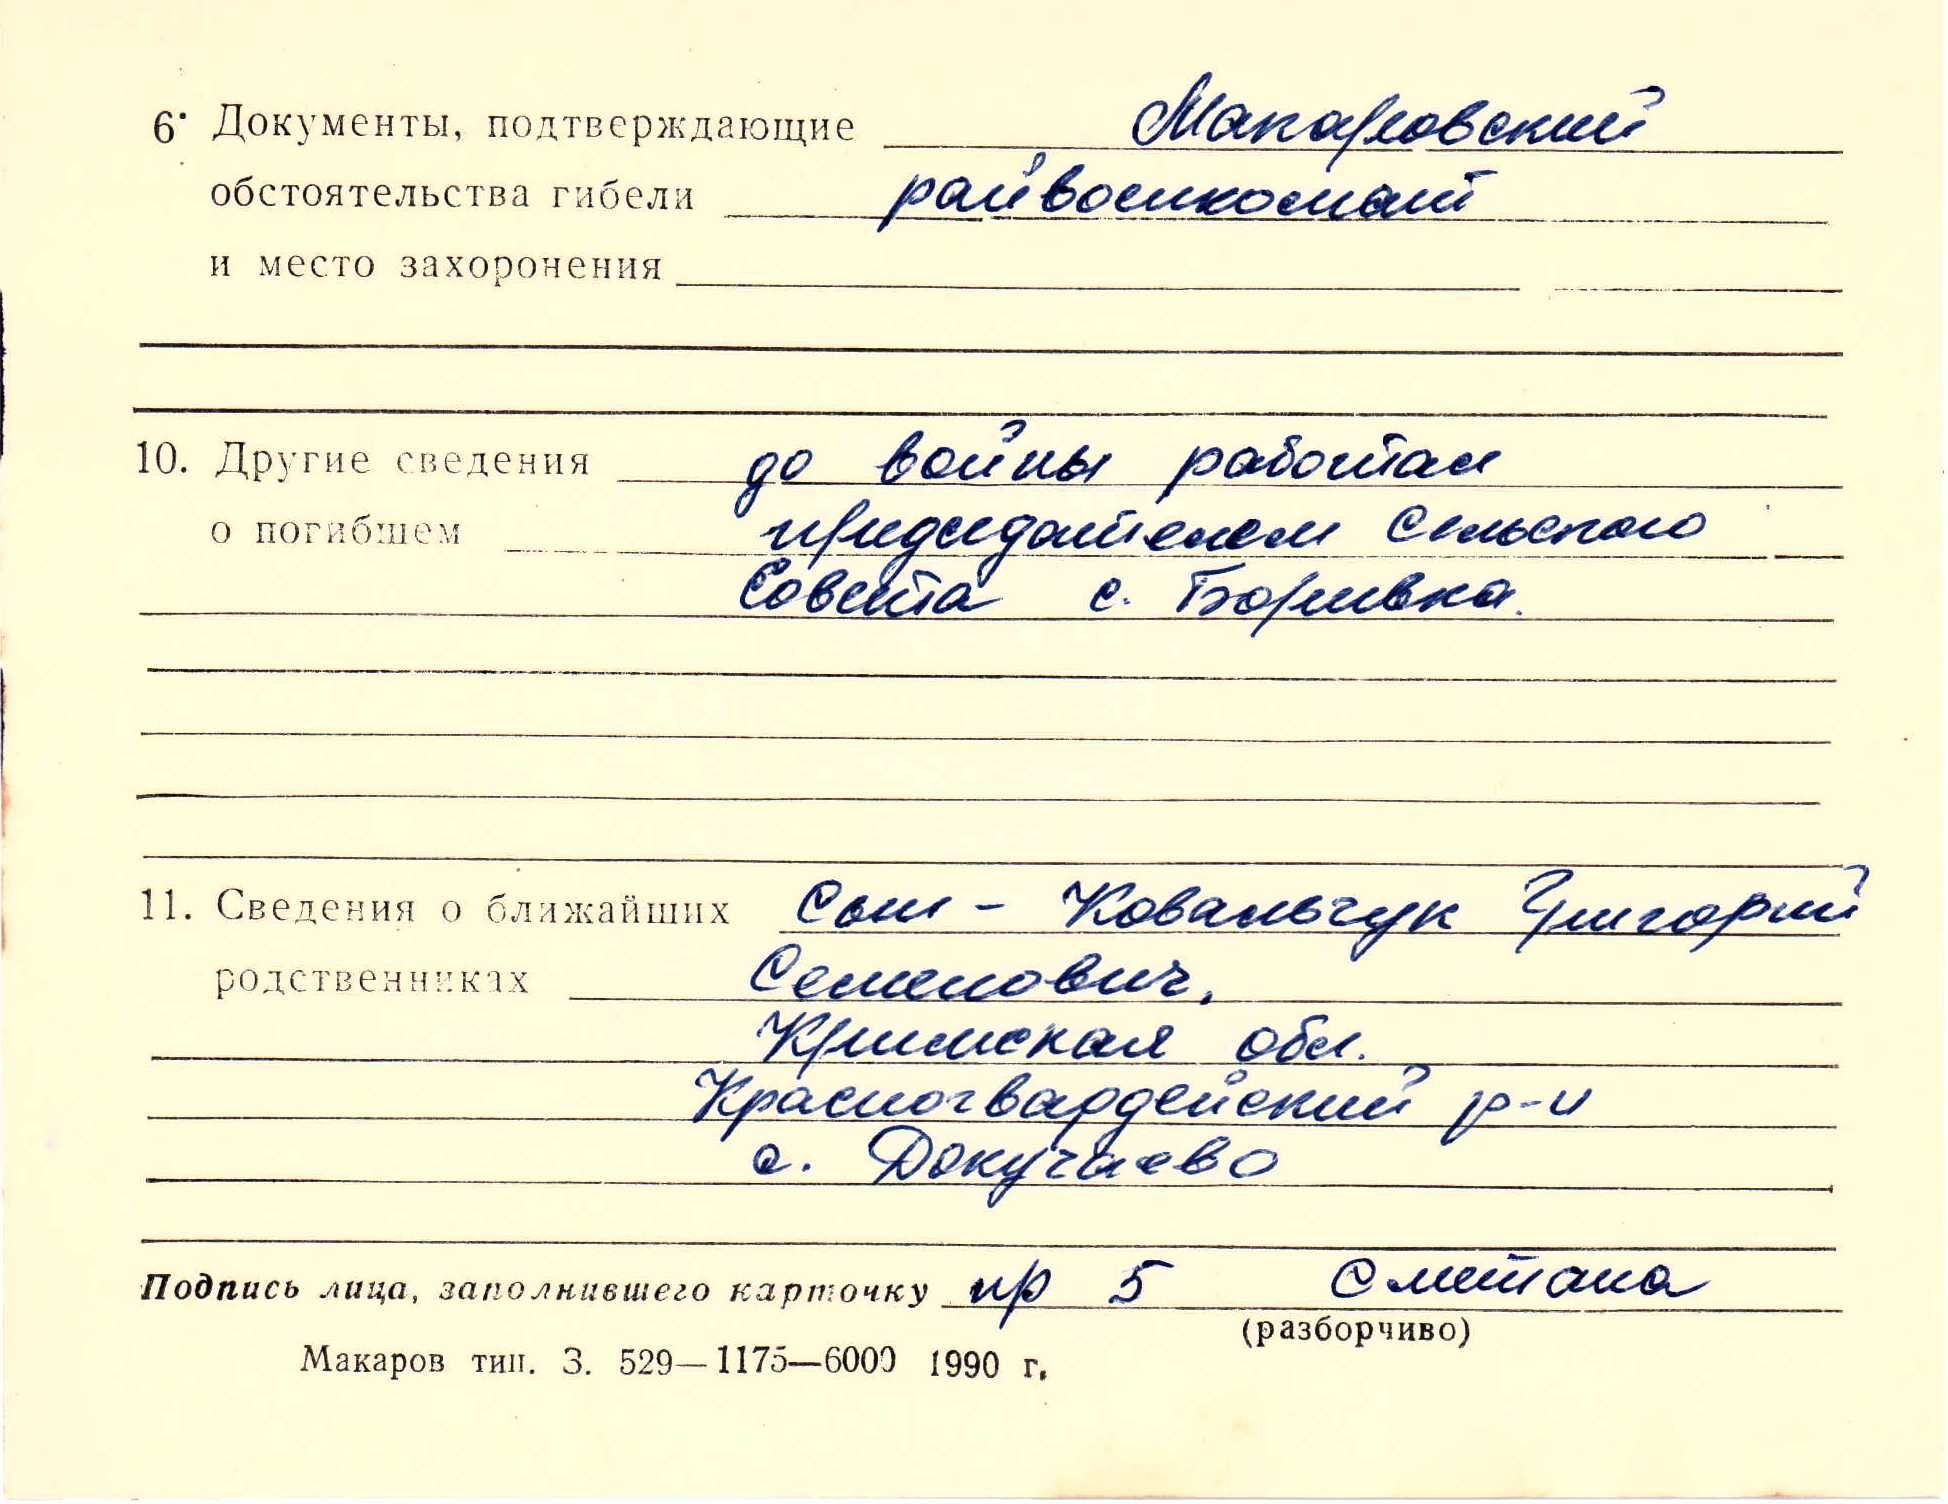 6. Документы, подтверждающие Макаровский
обстоятельства гибели райвоенкомат
и место захоронения
10. Другие сведения до войны работал
о погибшем председателем Сельского
Совета с. Боривка.
11. Сведения о ближайших Сын - Ковальчук Григорий
родственниках Семенович,
Кримская обл.
Красногвардейский р-н
с. Докучаево
Подпись лица, заполнившего карточку пр 5 Сметана
(разборчиво)
Макаров тип. З. 529—1175—6000 1990 г.